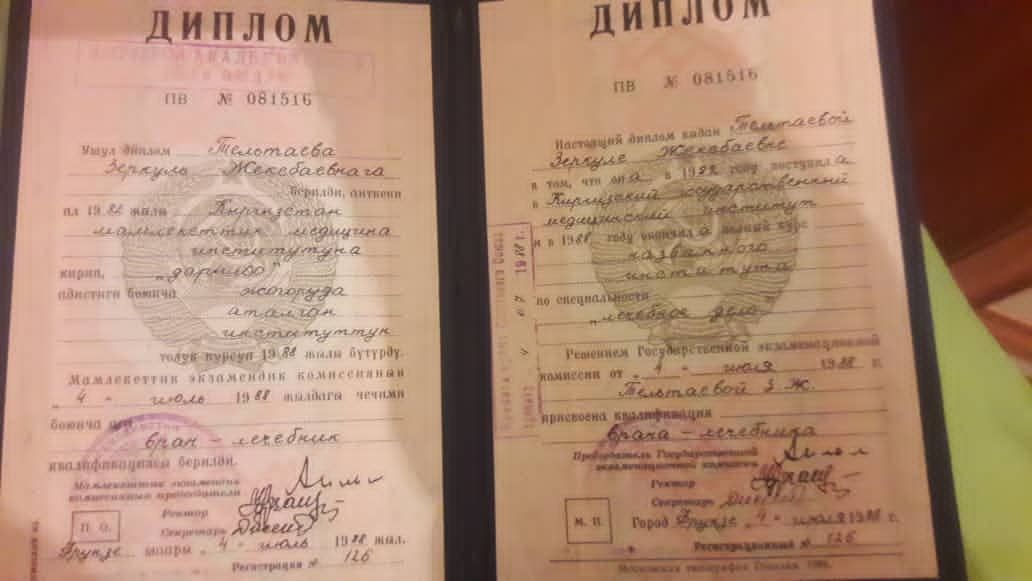 ДИПЛОМ
ПВ № 081516
Ушул диплом Тельтаева
Зеркуль Жекебаевнага
берилди, анткени
ал 1982 жылы Кыргызстан
мамлекеттик медицина
институтуна
кирип, „дарылоо"
адистиги боюнча жогоруда
аталган
институттун
толук курсун 1988 жылы бүтүрдү.
Мамлекеттик экзамендик комиссиянын
„ 4 " июль 1988 жылдагы чечими
боюнча
врач – лечебник
квалификациясы берилди.
Мамлекеттик экзамендик
комиссиянын председатели
Ректор
Секретарь
П. О.
Фрунзе шаары „ 4 " июль 1988 жыл.
Регистрация № 126
ДИПЛОМ
ПВ № 081516
Настоящий диплом выдан Тельтаевой
Зеркуле Жекебаевне
в том, что она в 1982 году поступила
в Киргизский государственный
медицинский институт
и в 1988 году окончила полный курс
названного
института
по специальности
„лечебное дело"
Решением Государственной экзаменационной
комиссии от „ 4 " июля 1988 г.
Тельтаевой З. Ж.
присвоена квалификация
врача – лечебника
Председатель Государственной
экзаменационной комиссии
Ректор
Секретарь
М. П.
Город Фрунзе „ 4 " июля 1988 г.
Регистрационный № 126
Московская типография Гознака